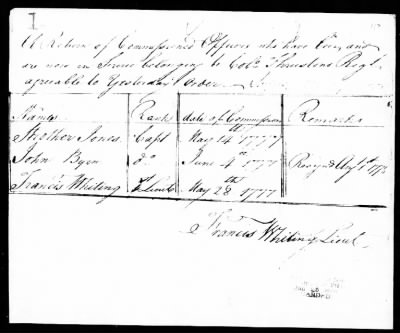 I
A Return of Commissioned Officers who have been, and
are now in Service belonging to Colo. Thrustons Regt.
agreable to Yesterday's Order
Names Rank date of Commission Remarks
Strother Jones Capt May 14th 1777
John Byrn do June 4th 1777 Resign'd Augt 1st
Francis Whiting Lieut May 28th 1777
Francis Whiting Lieut